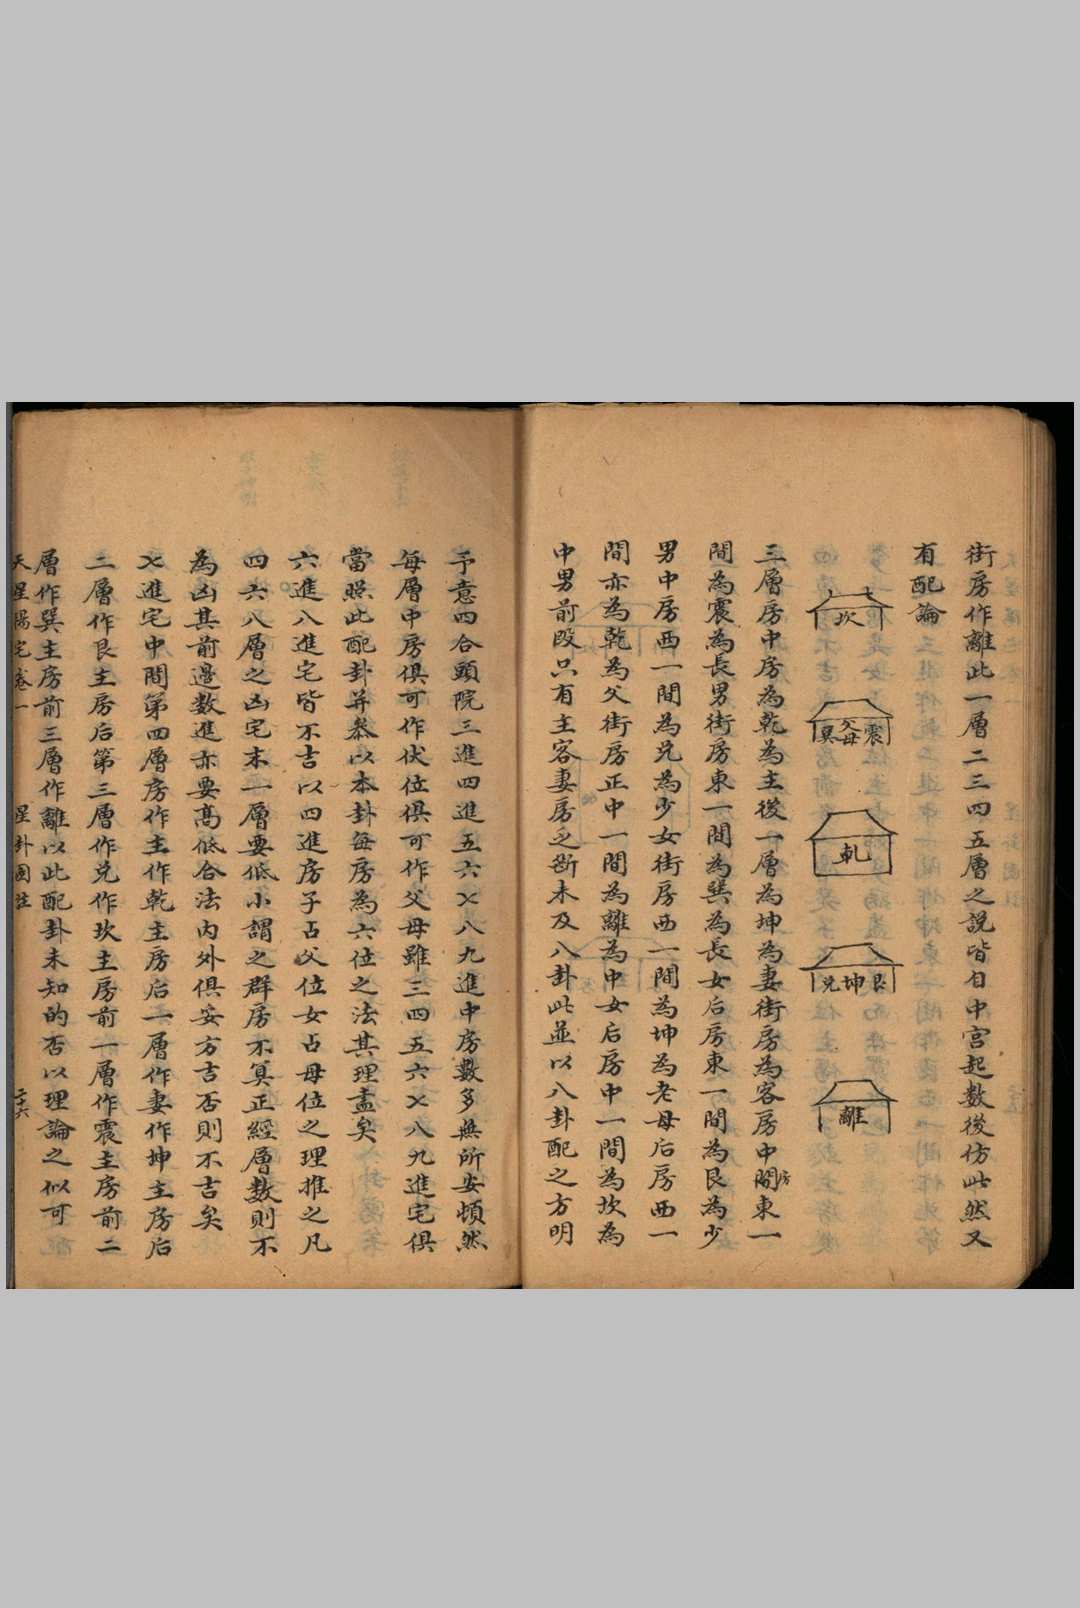 街房作離此一層二三四五層之説皆自中宮起数後仿此然又
有配論
坎
震父母巽
乹
艮坤兌
離
三層房中房為乾為主後一層為坤為妻街房為客房中間房東一
間為震為長男街房東一間為巽為長女后房東一間為艮為少
男中房西一間為兌為少女街房西一間為坤為老母后房西一
間亦為乾為父街房正中一間為離為中女后房中一間為坎為
中男前段只有主客妻房之断未及八卦此並以八卦配之方明
予意四合頭院三進四進五六乂八九進中房數多無所安頓然
每層中房俱可作伏位俱可作父母雖三四五六乂八九進宅俱
當照此配卦并叅以本卦每房為六位之法其理盡矣
六進八進宅皆不吉以四進房子占父位女占母位之理推之凡
四六八層之凶宅末一層要低小謂之群房不算正經層数則不
為凶其前邉数進亦要高低合法内外俱安方吉否則不吉矣
乂進宅中間第四層房作主作乾主房后一層作妻作坤主房后
二層作艮主房后第三層作兌作坎主房前一層作震主房前二
層作巽主房前三層作離以此配卦未知的否以理論之似可
天星陽宅卷一　星卦圖註　二十六